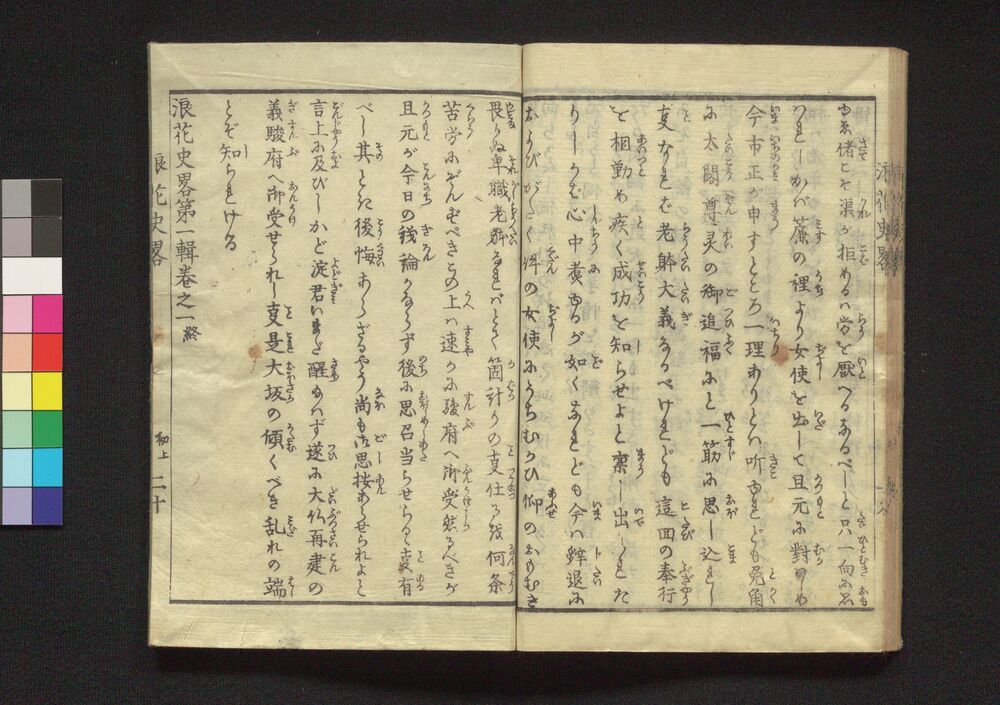 ゆゑ偖こそ渠が拒めるハ労を厭へるなるべしと只一向に思
はれしかバ簾の裡より女使を出して且元に対ひしめ
今市正が申すところ一理ありとハ听ゆれども兎角
に太閤尊灵の御追福にと一筋に思し込れし
叓なれば老躰大義なるべけれども這回の奉行
を相勤め疾く成功を知らせよと稟し出しされた
りしかば心中黄なるが如くなれども今ハ辞退に
およびがたく件の女使にうちむかひ仰のおもむき
畏りぬ卑職老躰なれバとて箇計りの叓仕る
苦労にぞんずべきこの上ハ速かに駿府へ御受然るべきが
且元が今日の議論かならず後に思召当らせらるゝ叓有
べし其ときに後悔あらざるやう尚も御思按あらせられよと
言上に及びしかど淀君いまだ醒たまハず遂に大仏再建の
義駿府へ御受せられし叓是大坂の傾くべき乱れの端
とぞ知られける
浪花史畧第一輯巻之一終
浪花史畧 初上 二十